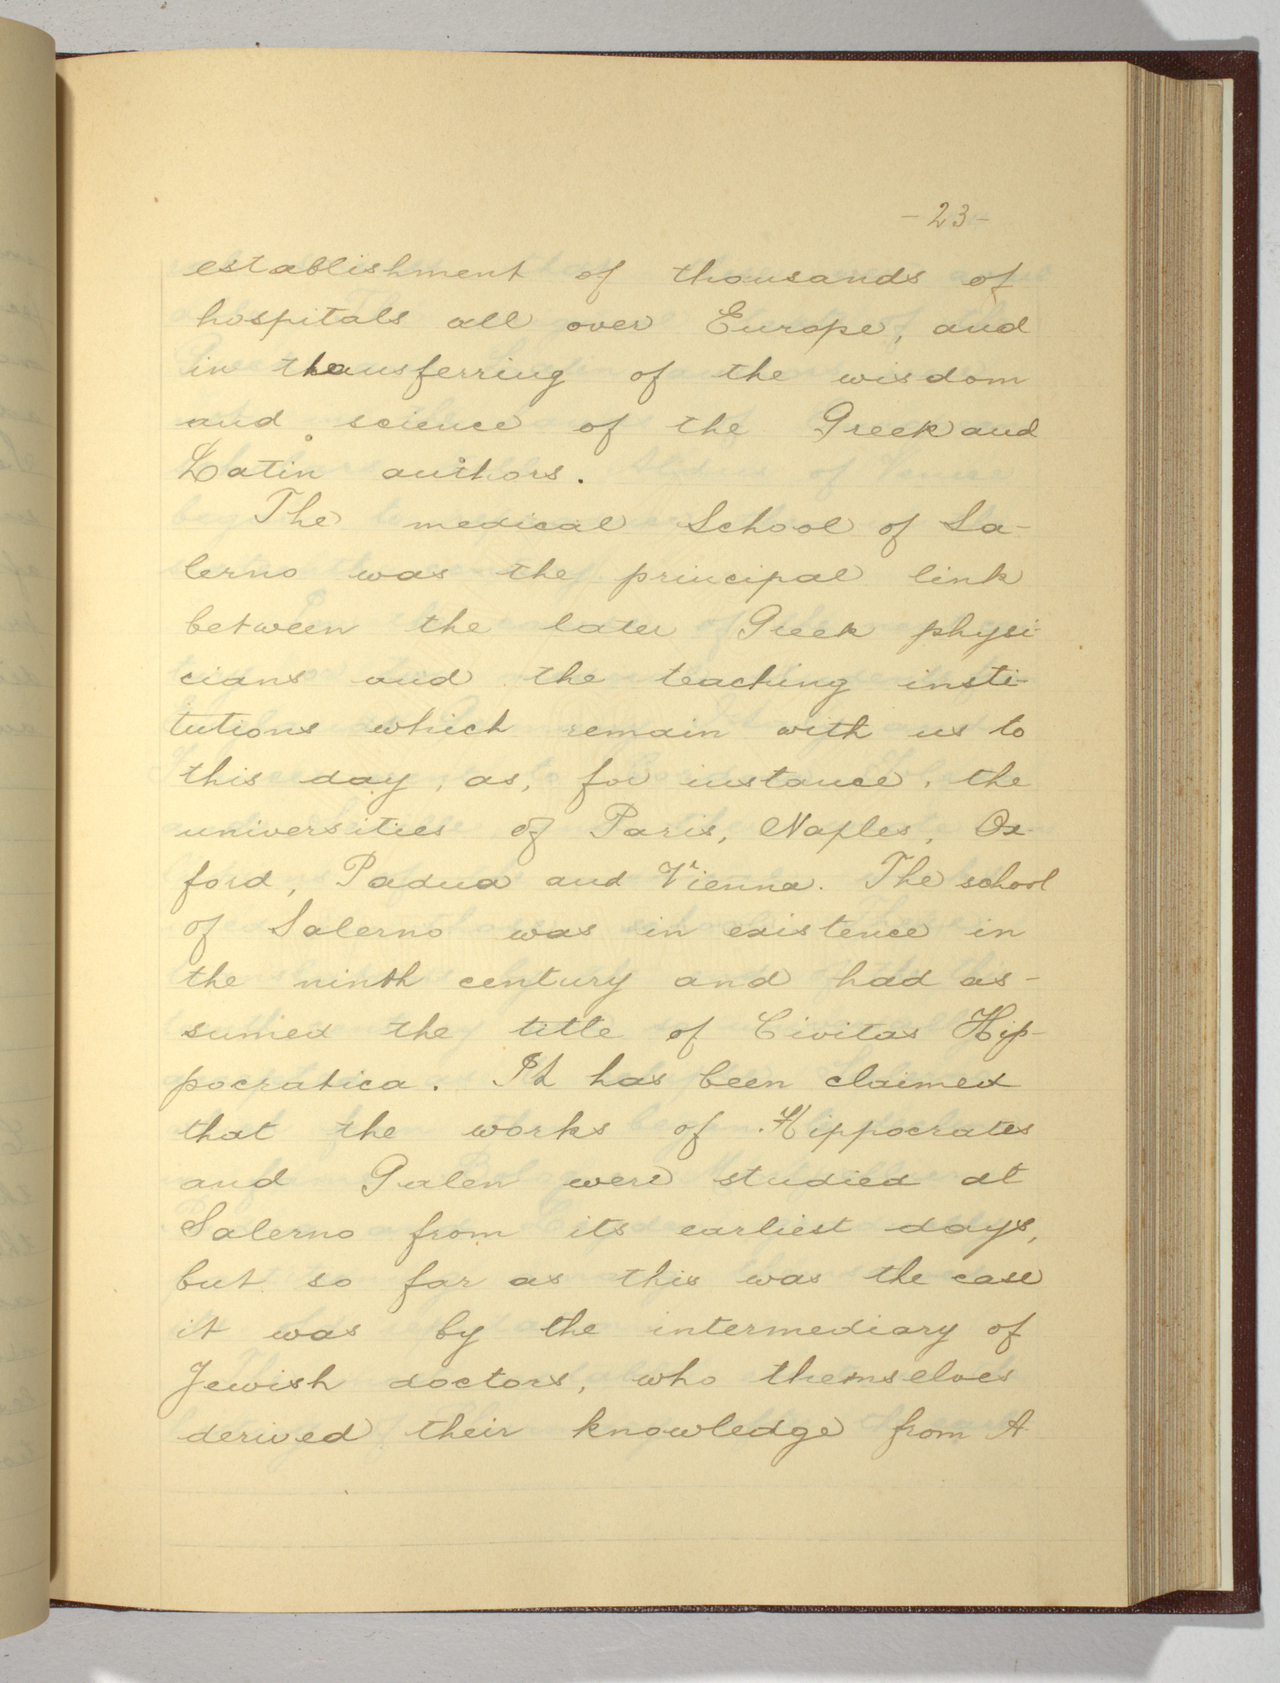 -23-
establishment of thousands of
hospitals all over Europe, and
in transferring of the wisdom
and science of the Greek and
Latin authors.
The medical School of Sa-
lerno was the principal link
between the later Greek physi-
cians and the teaching insti-
tutions which remain with us to
this day, as, for instance, the
universities of Paris, Naples, Ox-
ford, Padua and Vienna. The school
of Salerno was in existence in
the ninth century and had as-
sumed the title of Civitas Hip-
pocratica. It has been claimed
that the works of Hippocrates
and Galen were studied at
Salerno from its earliest days,
but so far as this was the case
it was by the intermediary of
Jewish doctors, who themselves
derived their knowledge from A